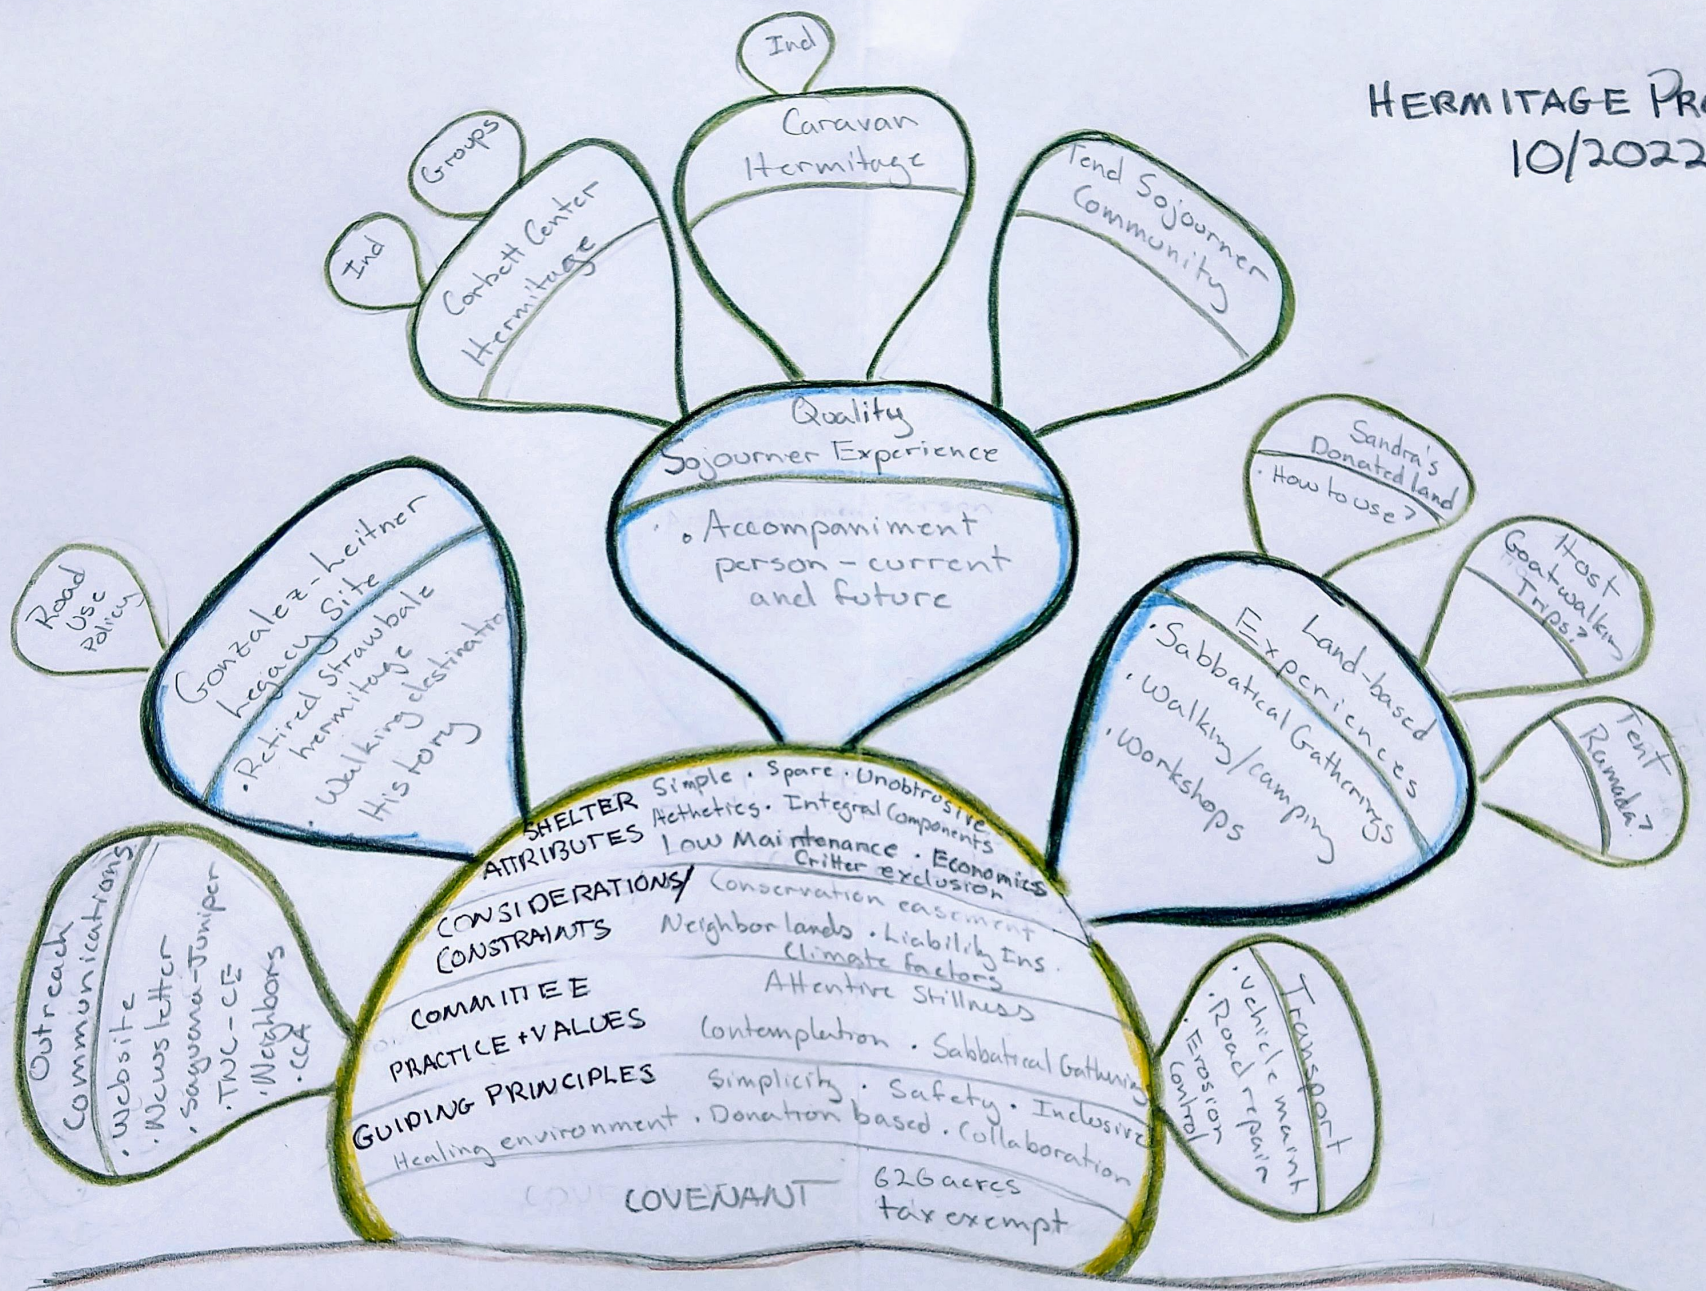 HERMITAGE PR
10/2022
Ind
Caravan
Hermitage
Groups
Ind
Corbett Center
Hermitage
Tend Sojourner
Community
Quality
Sojourner Experience
• Accompaniment
person – current
and future
Sandra's
Donated land
• How to use?
Host
Goatwalking
Trips?
Tent
Ramada?
Land-based
Experiences
• Sabbatical Gatherings
• Walking/camping
• Workshops
Road
Use
Policy
Gonzalez-Leitner
Legacy Site
• Retired Strawbale
hermitage
• Walking destination
History
Outreach
Communications
• Website
• Newsletter
• Saguaro-Juniper
• TNC-CE
• Neighbors
• CCA
Transport
• Vehicle maint
• Road repair
• Erosion
Control
SHELTER
ATTRIBUTES
Simple • Spare • Unobtrusive
Aethetics • Integral Components
Low Maintenance • Economics
Critter exclusion
CONSIDERATIONS/
CONSTRAINTS
Conservation easement
Neighbor lands • Liability Ins.
Climate factors
COMMITTEE
PRACTICE + VALUES
Attentive Stillness
Contemplation • Sabbatical Gathering
GUIDING PRINCIPLES
Simplicity • Safety • Inclusive
Healing environment • Donation based • Collaboration
COVENANT
626 acres
tax exempt